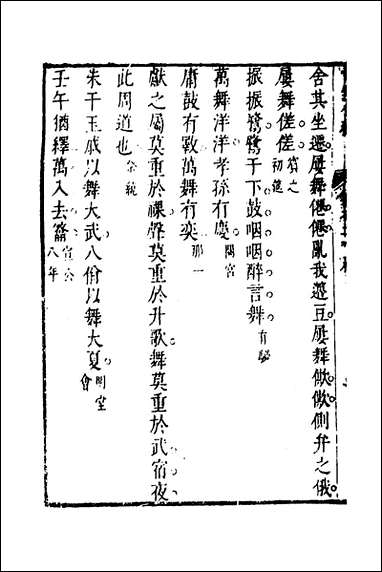 舍其坐遷屢舞僊僊亂我籩豆屢舞僛僛側弁之俄
屢舞傞傞賓之初筵
振振鷺鷺于下鼓咽咽醉言舞有駜
萬舞洋洋孝孫有慶閟宮
庸鼓有斁萬舞有奕那一
獻之屬莫重於祼聲莫重於升歌舞莫重於武宿夜
此周道也祭統
朱干玉戚以舞大武八佾以舞大夏明堂
壬午猶繹萬入去籥宣公八年